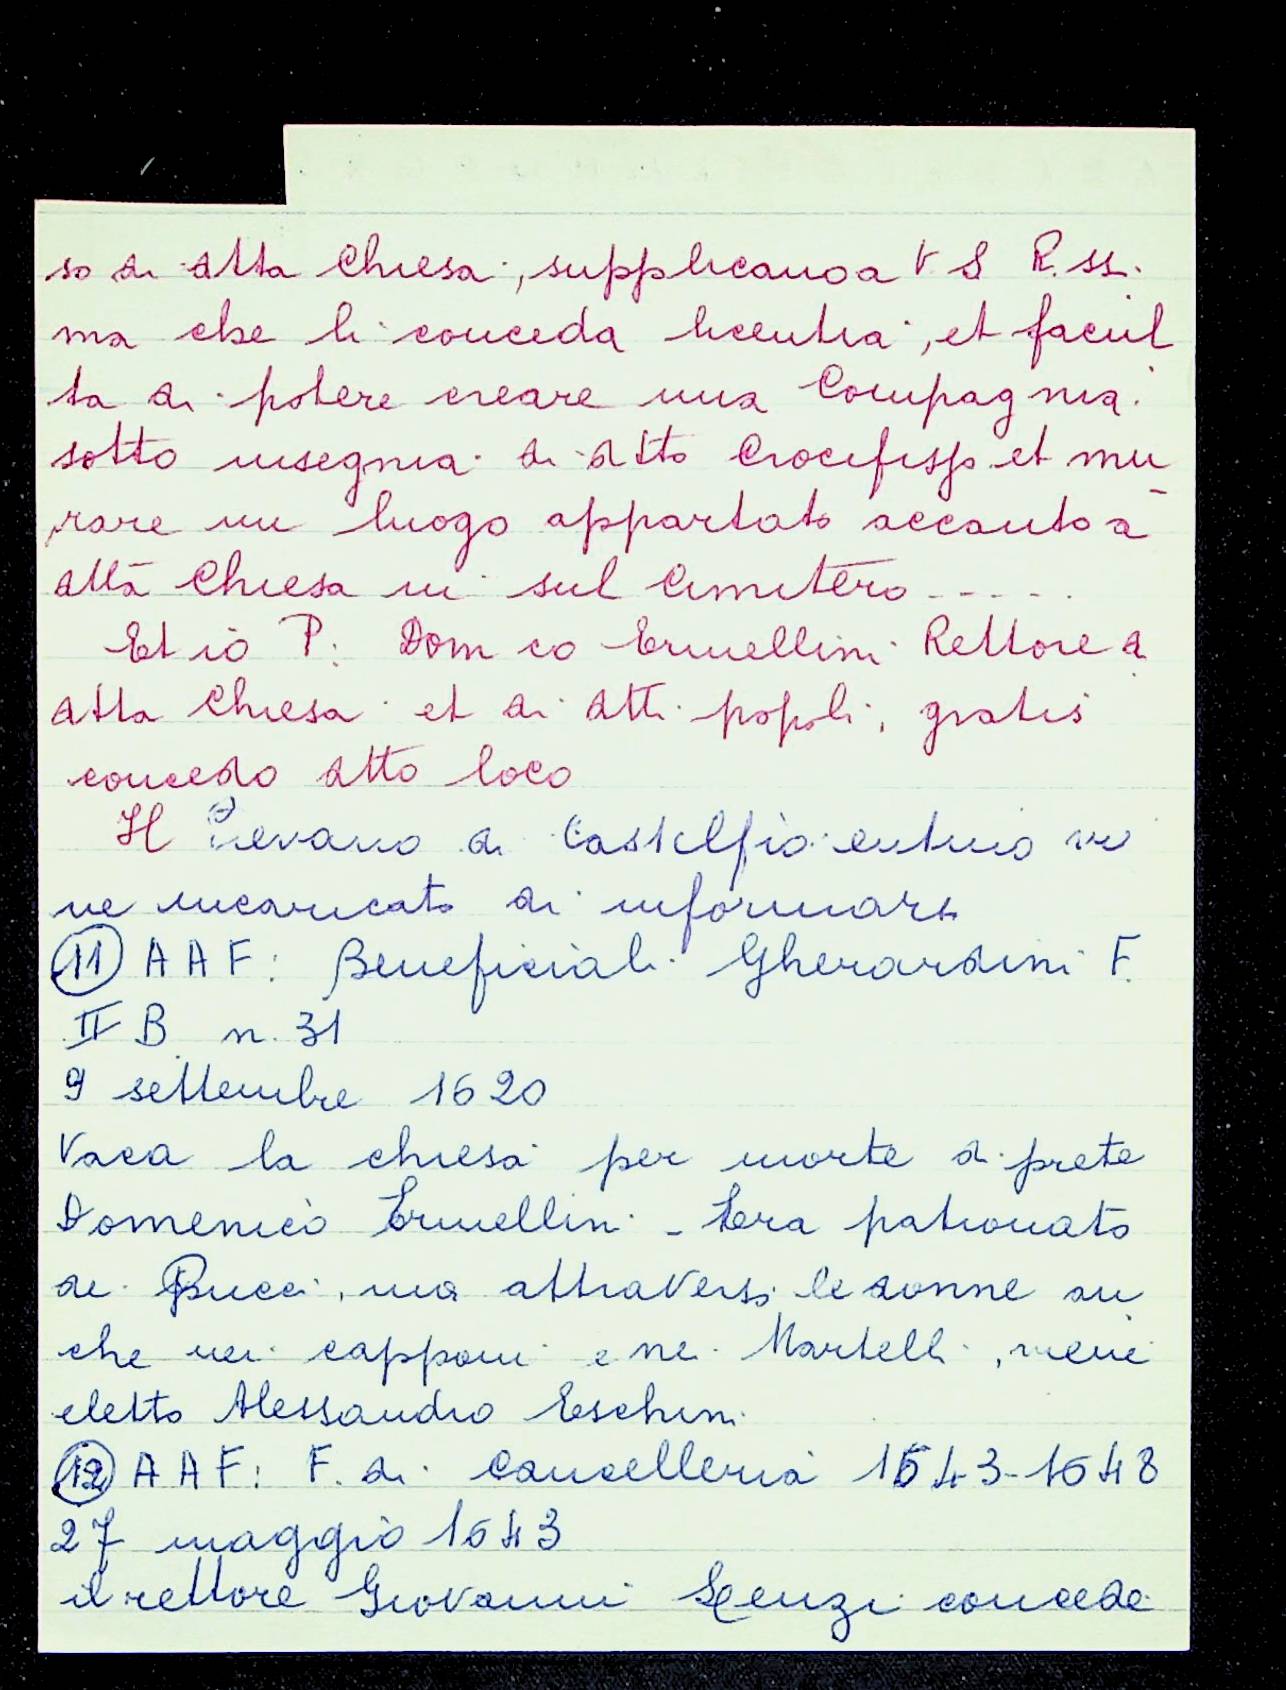 so di dtta Chiesa, supplicano a V S R.ss.
ma che li conceda licentia, et facul
ta di potere creare una Compagnia
sotto insegnia di dtto Crocifisso et mu
rare un luogo appartato accanto a
dtta Chiesa in sul Cimitero -----
Et io P: Domco Ermellini Rettore d
dtta Chiesa et di dtti popoli, gratis
concedo dtto loco
Il Pievano di Castelfiorentino vie
ne incaricato di informarsi
(11) AAF: Beneficiali Gherardini F.
II B n. 31
9 settembre 1620
Vaca la chiesa per morte di prete
Domenico Ermellini - Era patronato
dei Pucci, ma attraverso le donne an
che nei capponi e nei Martelli, viene
eletto Alessandro Eschini
(12) AAF: F. di Cancelleria 1643-1648
27 maggio 1643
il rettore Giovanni concede